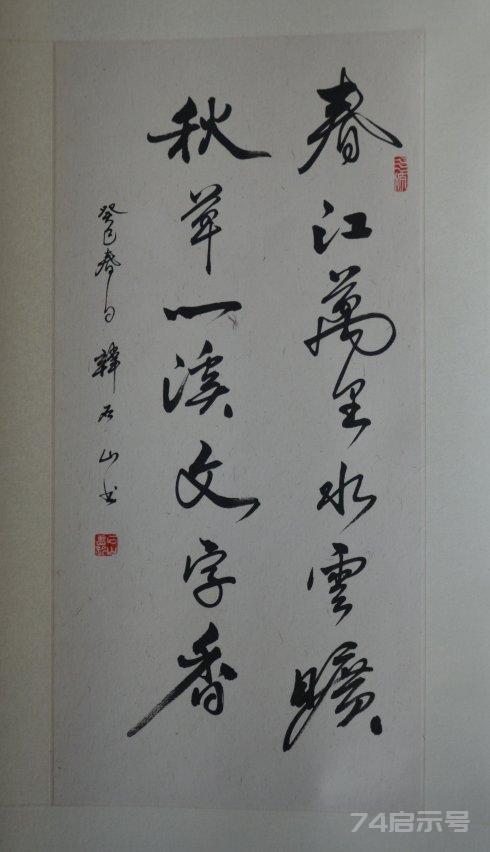 春江萬里水雲曠
秋草一溪文字香
癸巳春日 韓石山书
74启示号